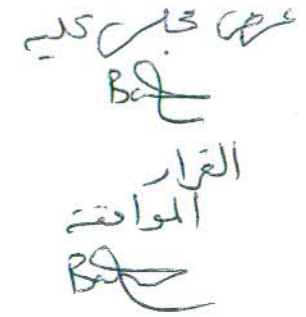 عرض مجلس كلية
القرار
الموافقة